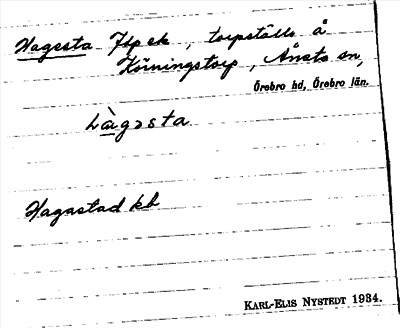 Hagasta Jlp ek, torpställe å
Körningstorp, Ånsta sn,
Örebro hd, Örebro län.
Hagastad kb
KARL-ELIS NYSTEDT 1934.